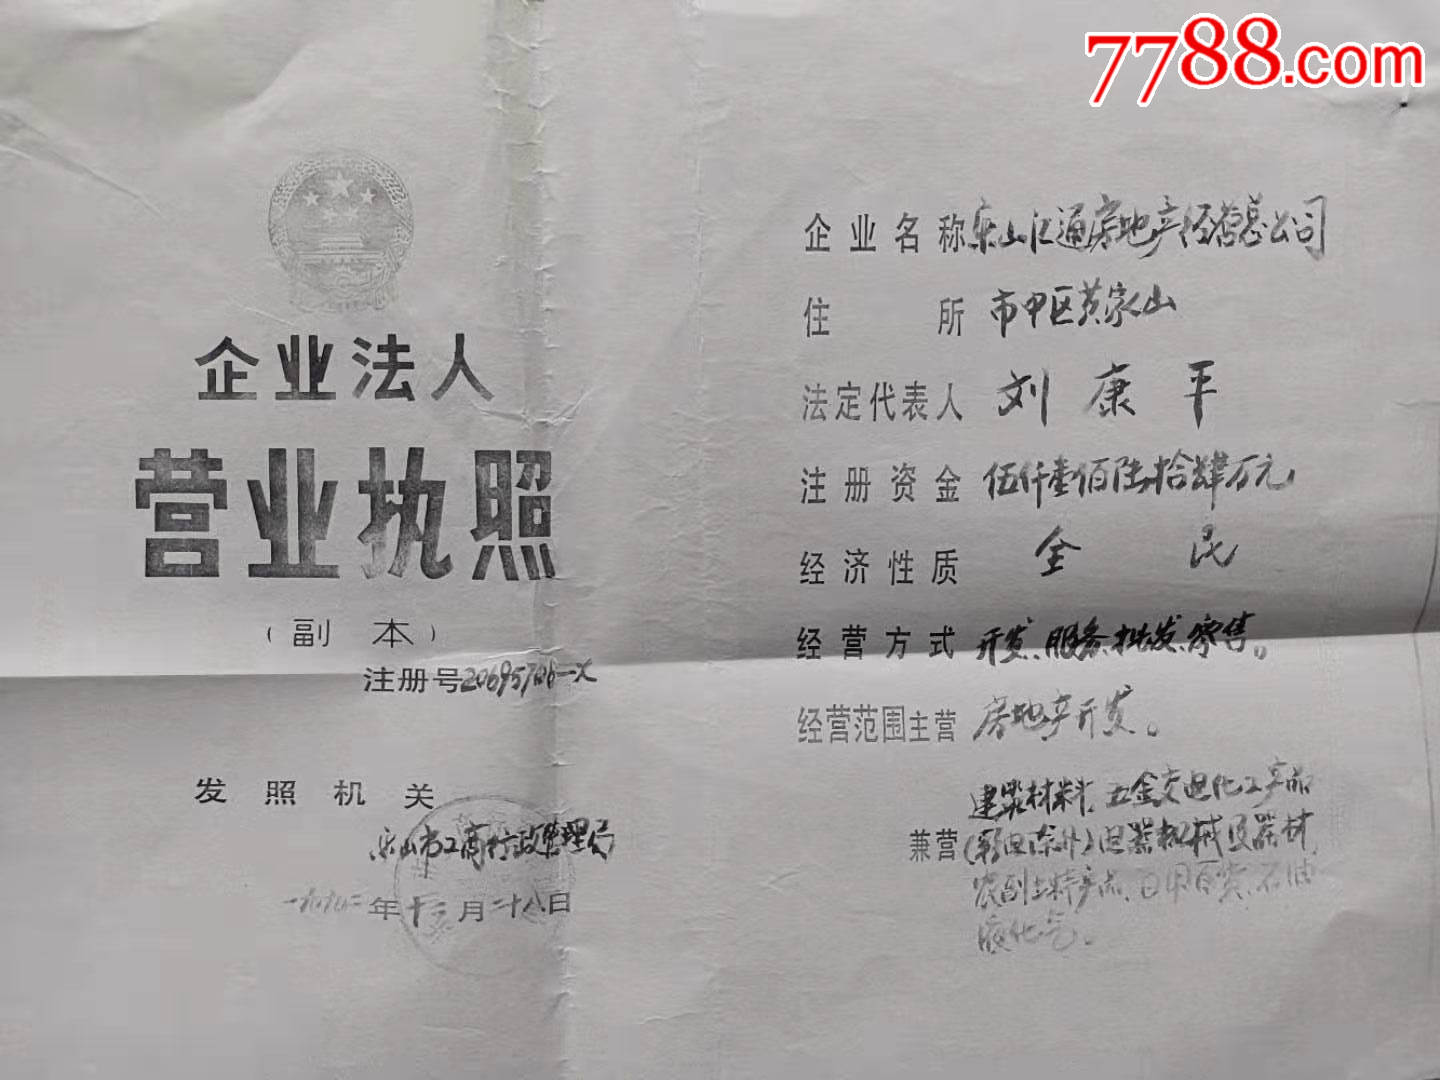 7788.com
企业法人
营业执照
（副本）
注册号20695708-X
发照机关
乐山市工商行政管理局
一九九二年十二月二十八日
企业名称 乐山汇通房地产经营总公司
住所 市中区黄家山
法定代表人 刘康平
注册资金 伍仟壹佰陆拾肆万元
经济性质 全民
经营方式 开发、服务、批发、零售。
经营范围主营 房地产开发。
建筑材料、五金交电化工产品
兼营(彩电除外)电器机械及器材,
农副土特产品、日用百货、石油
液化气。